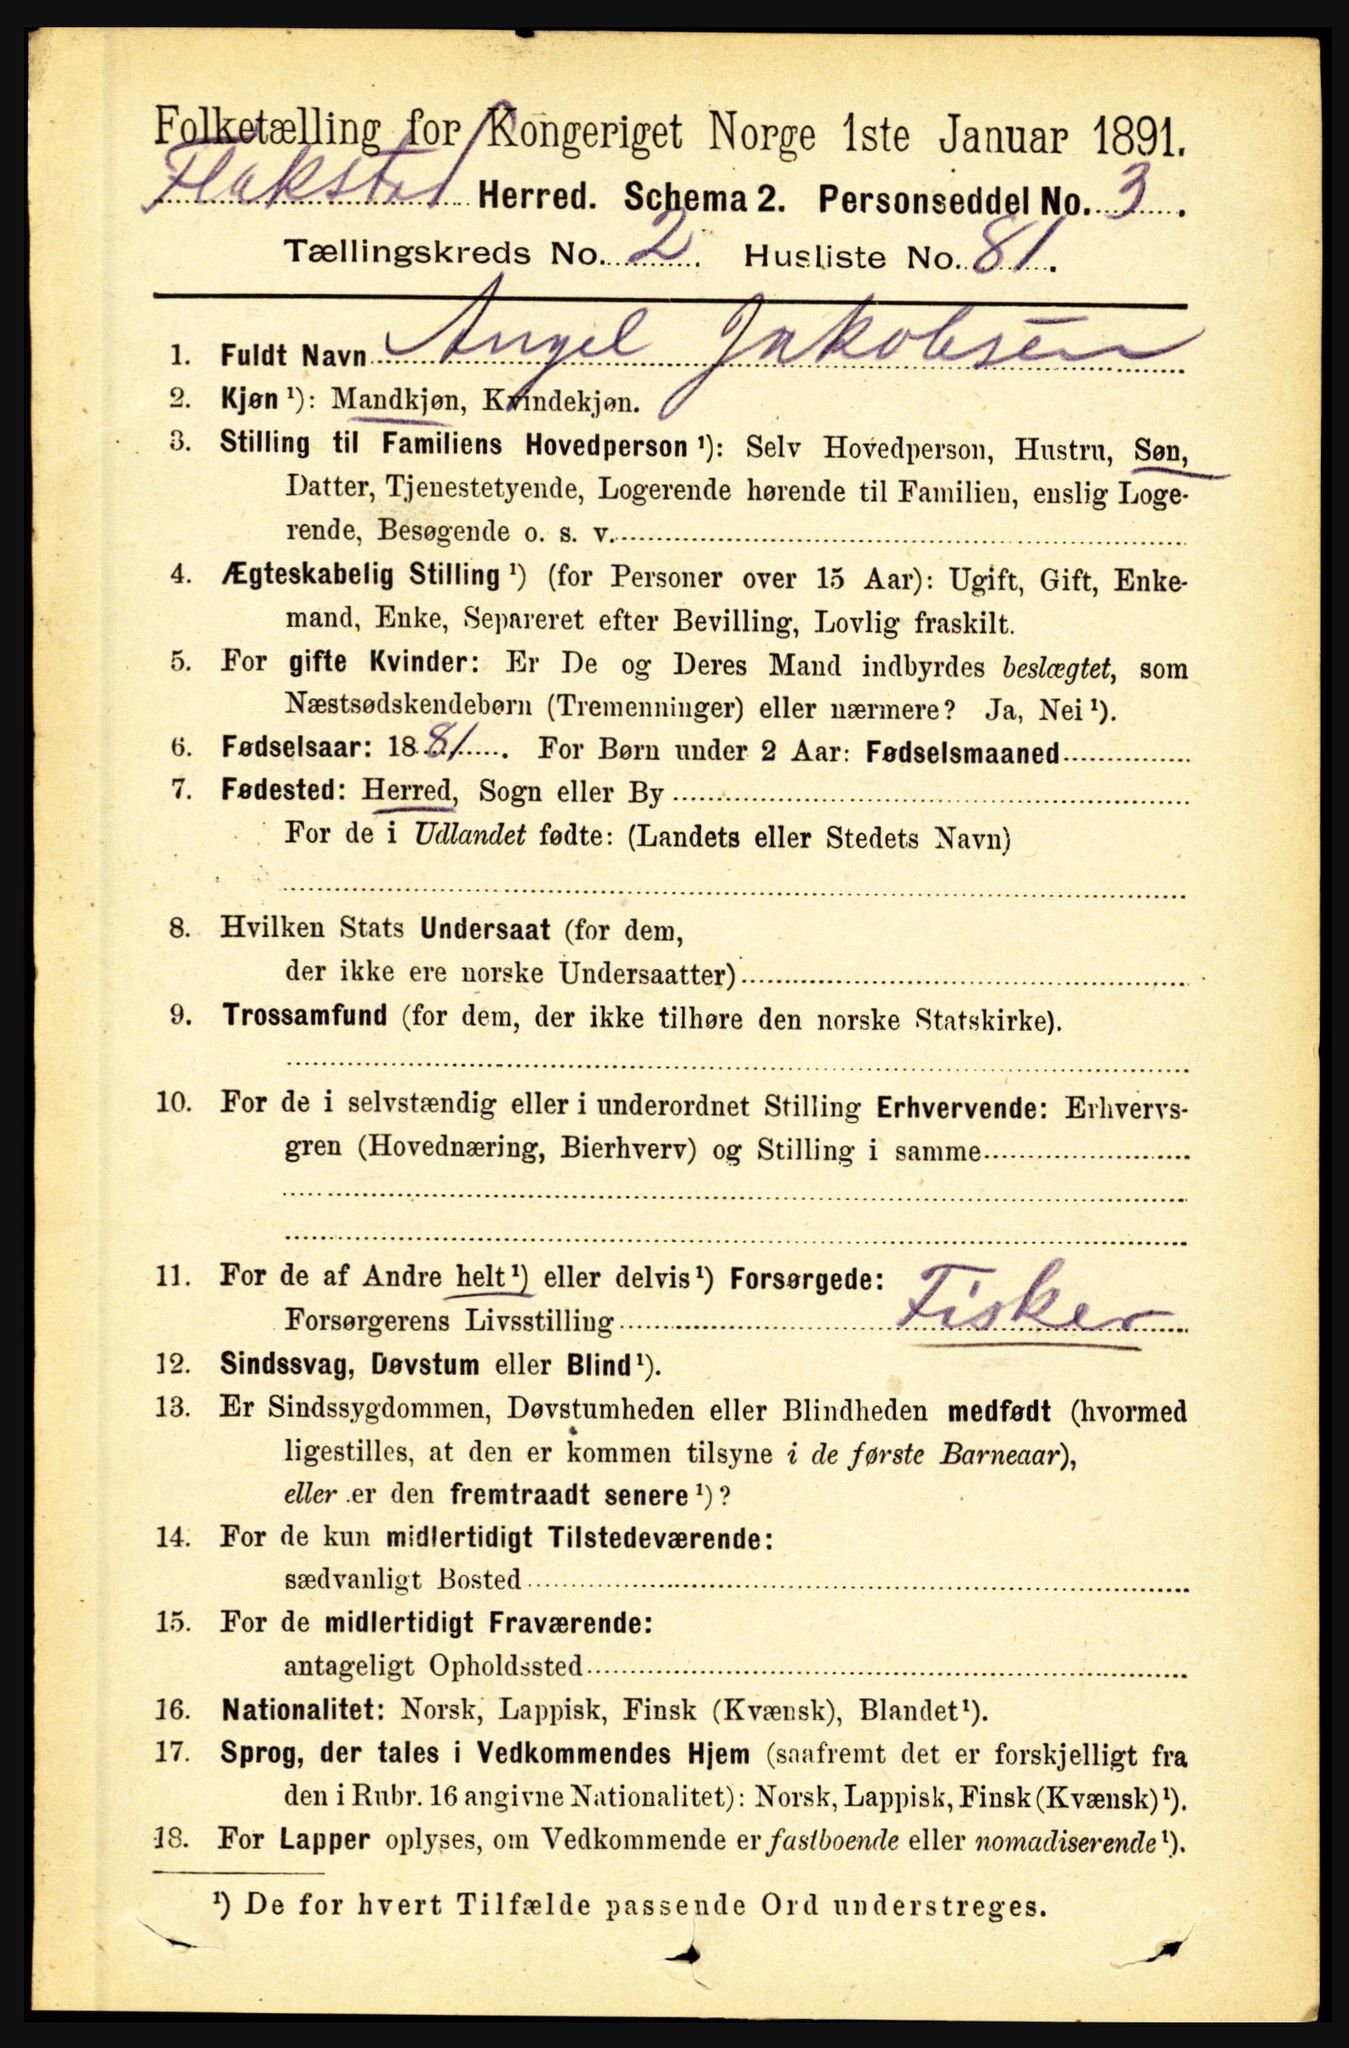 Folketælling for Kongeriget Norge 1ste Januar 1891.
Flakstad Herred. Schema 2. Personseddel No. 3.
Tællingskreds No. 2. Husliste No. 81.
1. Fuldt Navn Angel Jakobsen
2. Kjøn ¹): Mandkjøn, Kvindekjøn.
3. Stilling til Familiens Hovedperson ¹): Selv Hovedperson, Hustru, Søn,
Datter, Tjenestetyende, Logerende hørende til Familien, enslig Loge-
rende, Besøgende o. s. v.
4. Ægteskabelig Stilling ¹) (for Personer over 15 Aar): Ugift, Gift, Enke-
mand, Enke, Separeret efter Bevilling, Lovlig fraskilt.
5. For gifte Kvinder: Er De og Deres Mand indbyrdes beslægtet, som
Næstsødskendebørn (Tremenninger) eller nærmere? Ja, Nei ¹).
6. Fødselsaar: 1881. For Børn under 2 Aar: Fødselsmaaned
7. Fødested: Herred, Sogn eller By
For de i Udlandet fødte: (Landets eller Stedets Navn)
8. Hvilken Stats Undersaat (for dem,
der ikke ere norske Undersaatter)
9. Trossamfund (for dem, der ikke tilhøre den norske Statskirke).
10. For de i selvstændig eller i underordnet Stilling Erhvervende: Erhvervs-
gren (Hovednæring, Bierhverv) og Stilling i samme
11. For de af Andre helt ¹) eller delvis ¹) Forsørgede:
Forsørgerens Livsstilling Fisker
12. Sindssvag, Døvstum eller Blind ¹).
13. Er Sindssygdommen, Døvstumheden eller Blindheden medfødt (hvormed
ligestilles, at den er kommen tilsyne i de første Barneaar),
eller er den fremtraadt senere ¹)?
14. For de kun midlertidigt Tilstedeværende:
sædvanligt Bosted
15. For de midlertidigt Fraværende:
antageligt Opholdssted
16. Nationalitet: Norsk, Lappisk, Finsk (Kvænsk), Blandet ¹).
17. Sprog, der tales i Vedkommendes Hjem (saafremt det er forskjelligt fra
den i Rubr. 16 angivne Nationalitet): Norsk, Lappisk, Finsk (Kvænsk) ¹).
18. For Lapper oplyses, om Vedkommende er fastboende eller nomadiserende ¹).
¹) De for hvert Tilfælde passende Ord understreges.